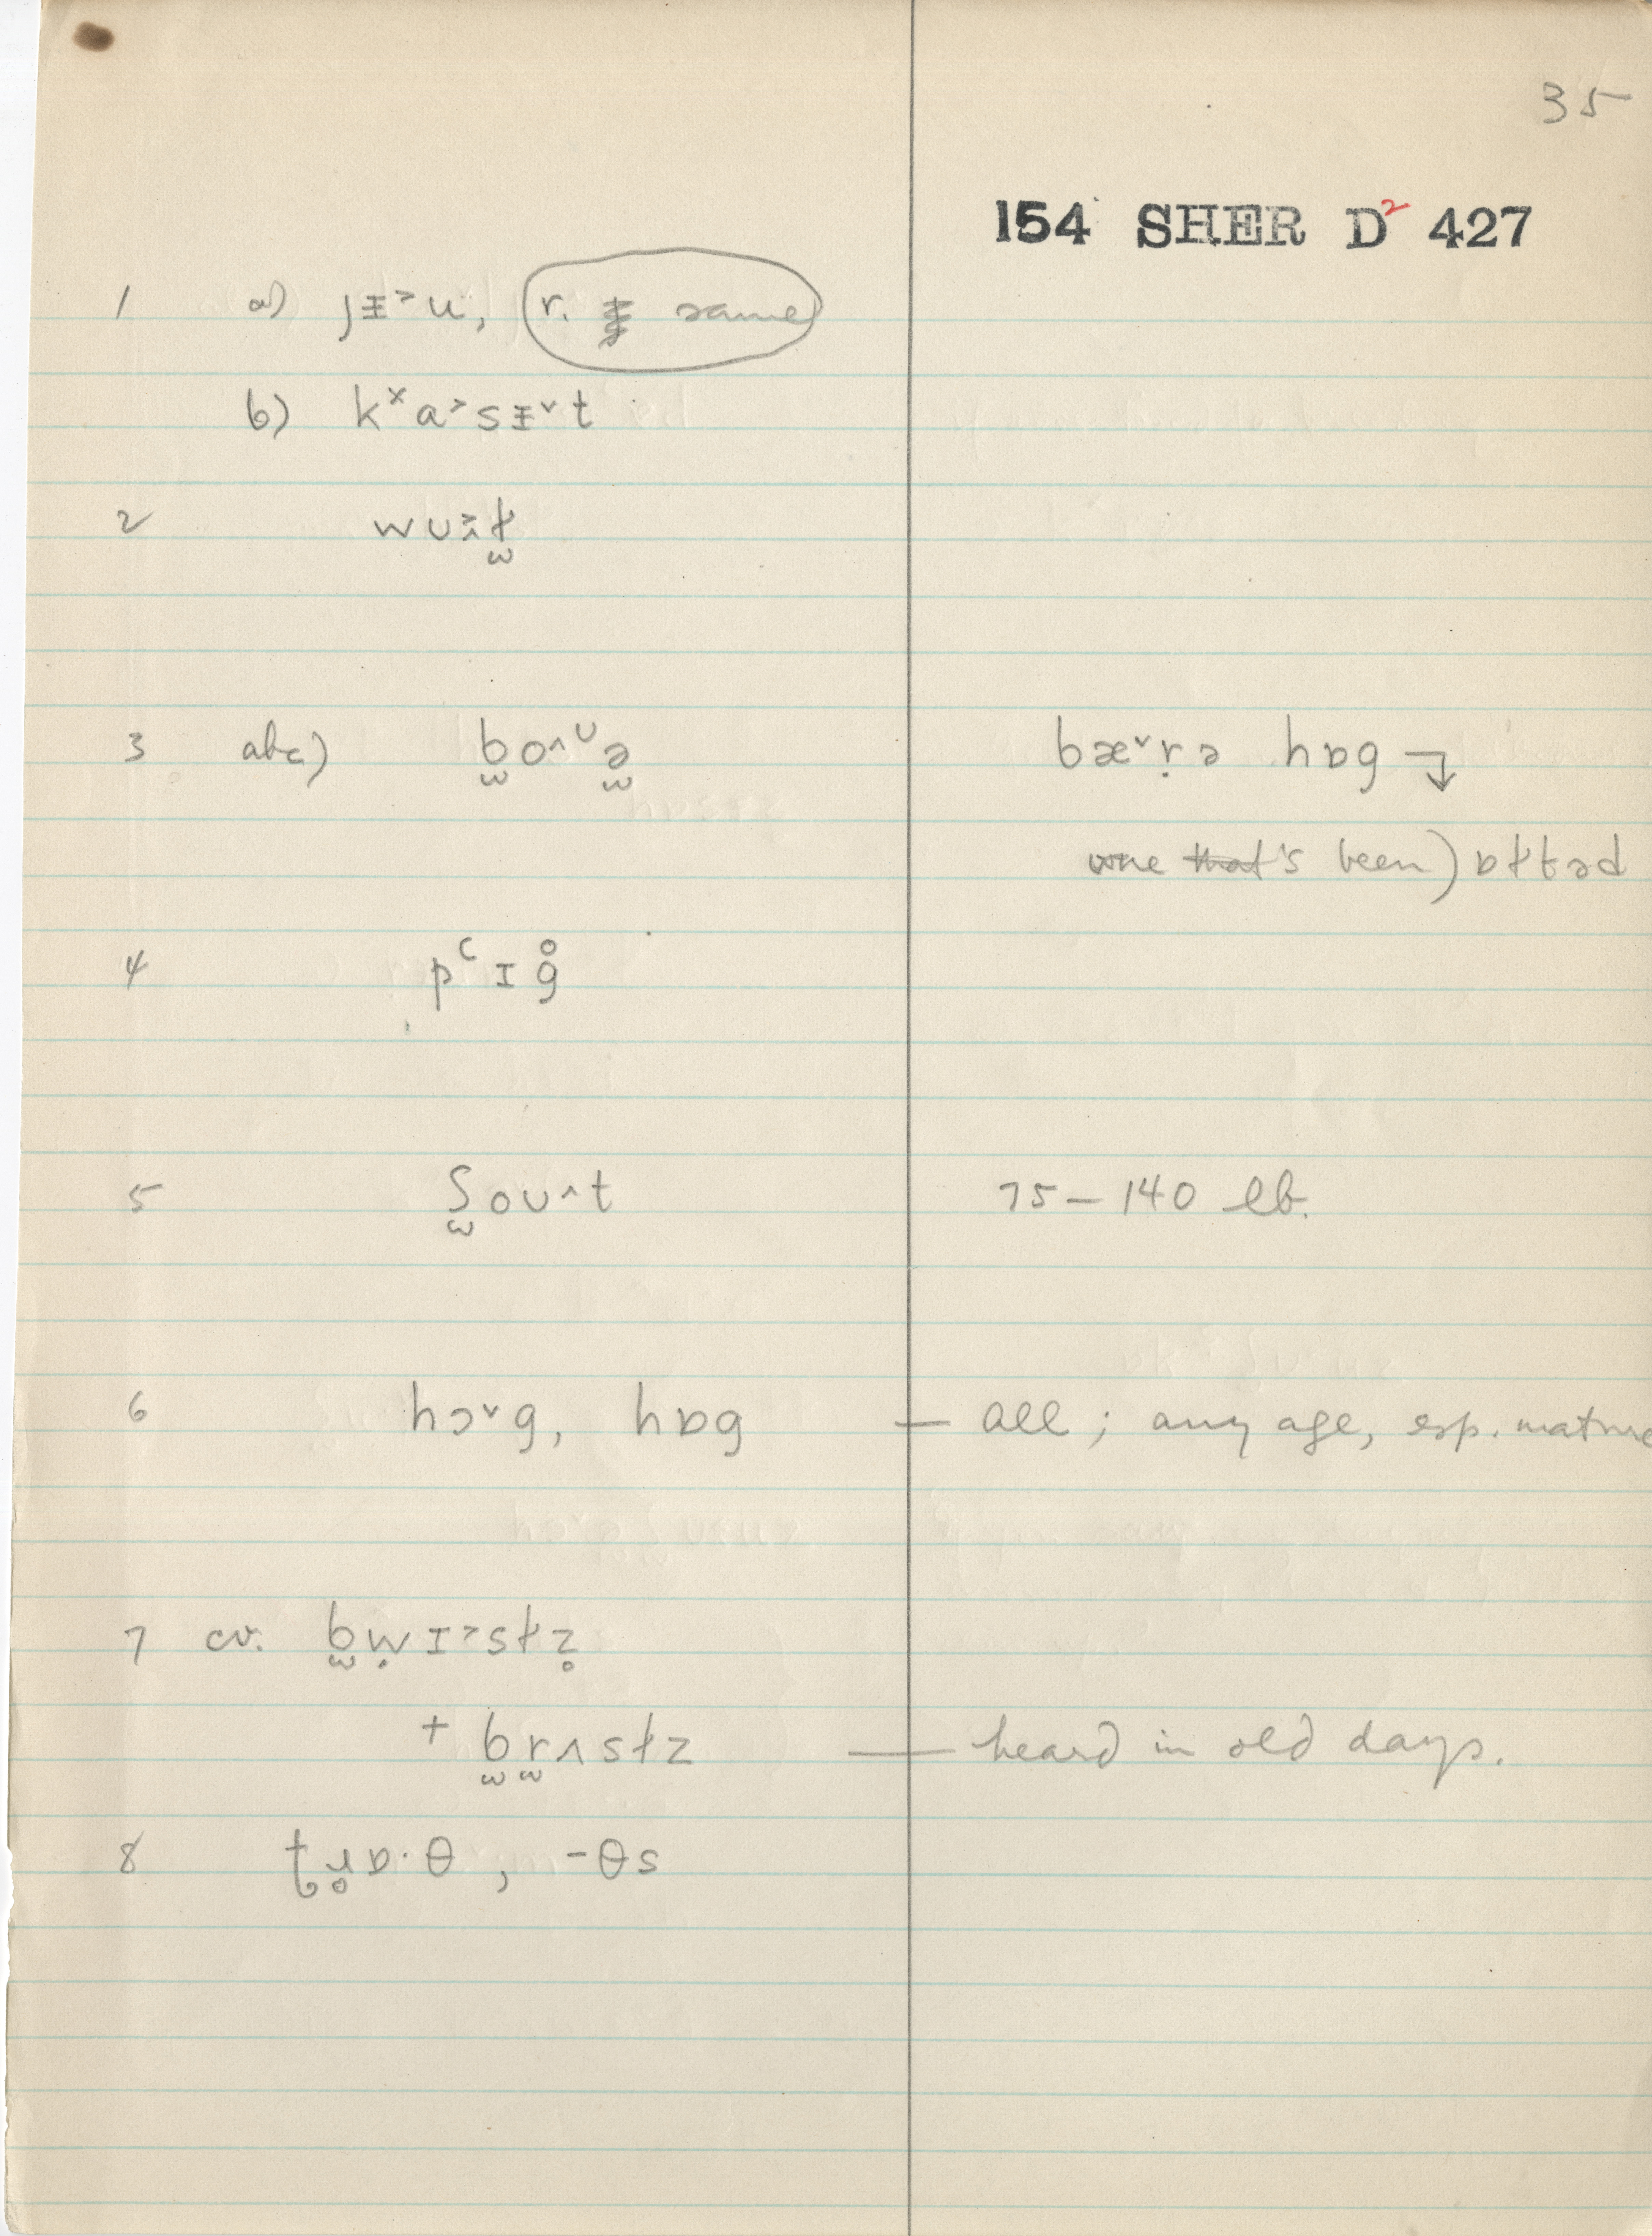 35
154 SHER D² 427
1 a) jᵻ˃u, r. same
b) kˣa˃sᵻ˅t
2 wu
3 abc) b̫o˄ᶸə̫ bæ˅ṛə hɒg ↴
one that's been) ɒɫtəd
4 pʻɪg̊
5 ʃ̫oʊ˄t 75 – 140 lb.
6 hɔ˅g, hɒg — all; any age, esp. mature
7 cv. b̫ẉɪ˃sɫz̥
+ b̫r̫ʌsɫz — heard in old days.
8 tɹ̥ɒ·θ, -θs